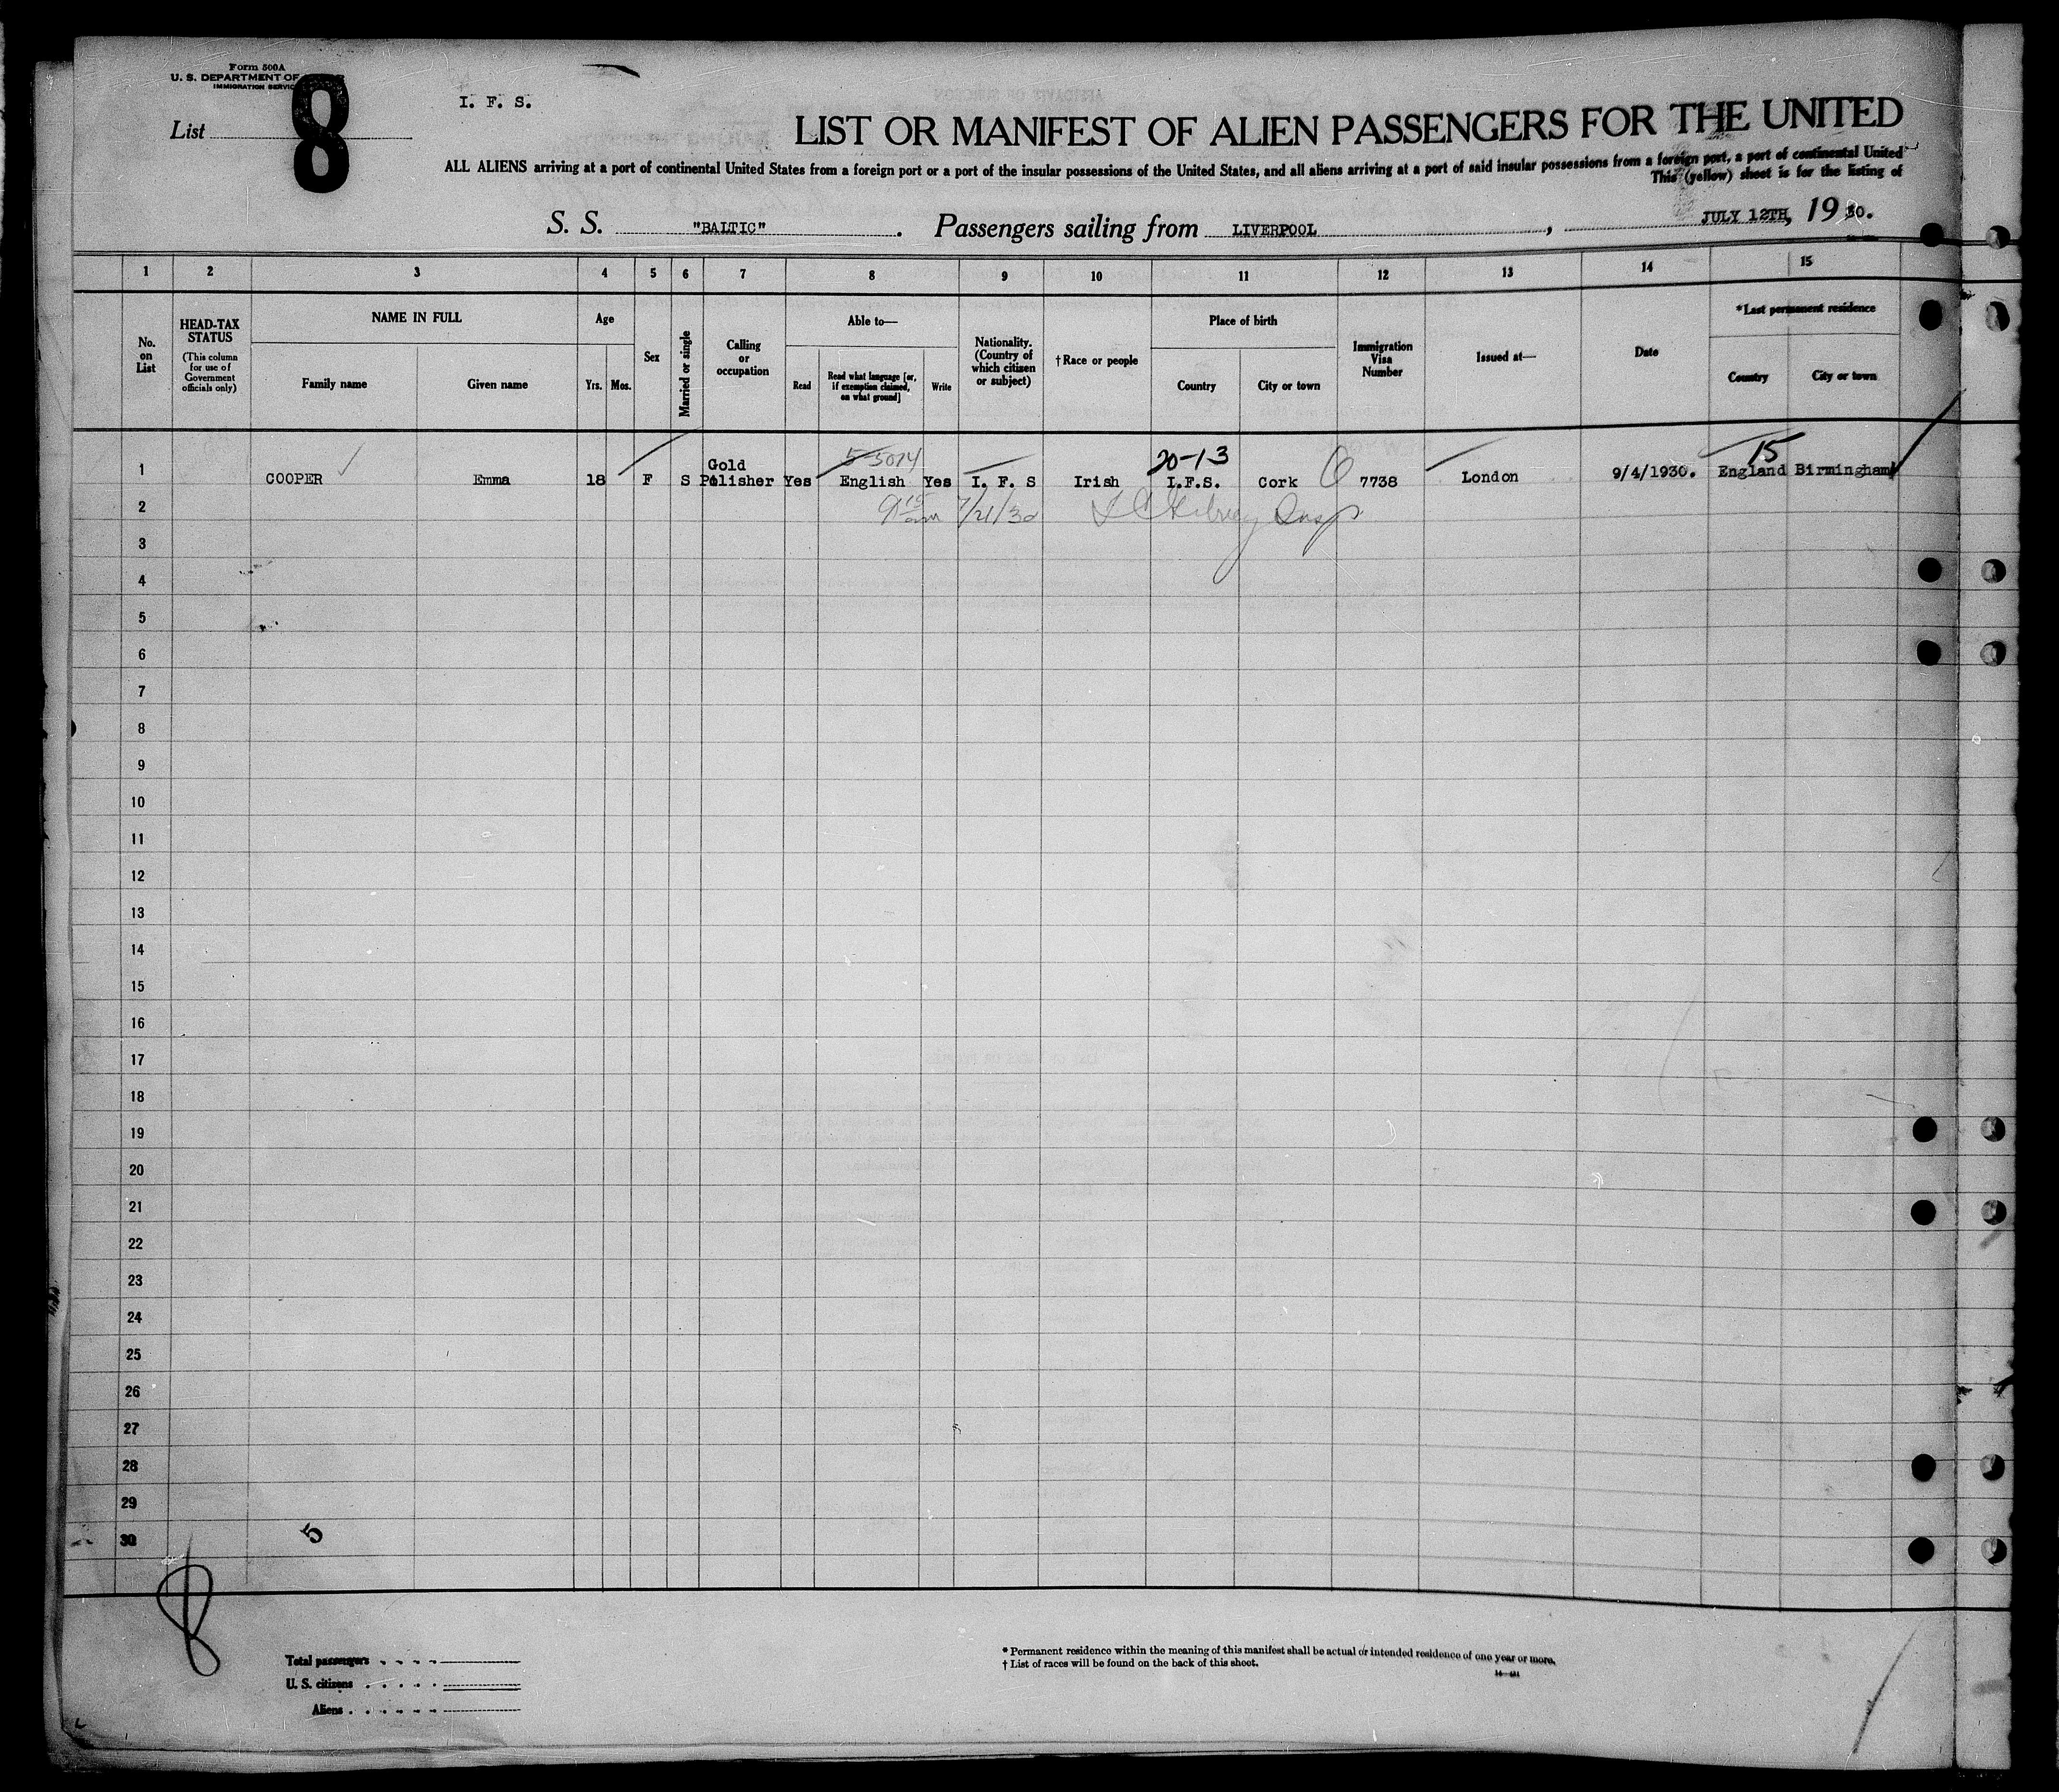 Form 500A
U. S. DEPARTMENT OF
IMMIGRATION SERVICE
List 8
I. F. S.
LIST OR MANIFEST OF ALIEN PASSENGERS FOR THE UNITED
ALL ALIENS arriving at a port of continental United States from a foreign port or a port of the insular possessions of the United States, and all aliens arriving at a port of said insular possessions from a foreign port, a port of continental United
This (yellow) sheet is for the listing of
S. S. "BALTIC". Passengers sailing from LIVERPOOL, JULY 12TH, 19 30.
1 2 3 4 5 6 7 8 9 10 11 12 13 14 15
No. on List
HEAD-TAX STATUS
(This column for use of Government officials only)
NAME IN FULL
Family name Given name
Age
Yrs. Mos.
Sex
Married or single
Calling or occupation
Able to—
Read
Read what language [or, if exemption claimed, on what ground]
Write
Nationality. (Country of which citizen or subject)
†Race or people
Place of birth
Country City or town
Immigration Visa Number
Issued at—
Date
*Last permanent residence
Country City or town
5-5074 20-13 15
1 COOPER Emma 18 F S Gold Polisher Yes English Yes I. F. S Irish I.F.S. Cork 7738 London 9/4/1930. England Birmingham
2 9 15 am 7/21/30
3
4
5
6
7
8
9
10
11
12
13
14
15
16
17
18
19
20
21
22
23
24
25
26
27
28
29
30
5
8
Total passengers
U. S. citizens
Aliens
* Permanent residence within the meaning of this manifest shall be actual or intended residence of one year or more.
† List of races will be found on the back of this sheet.